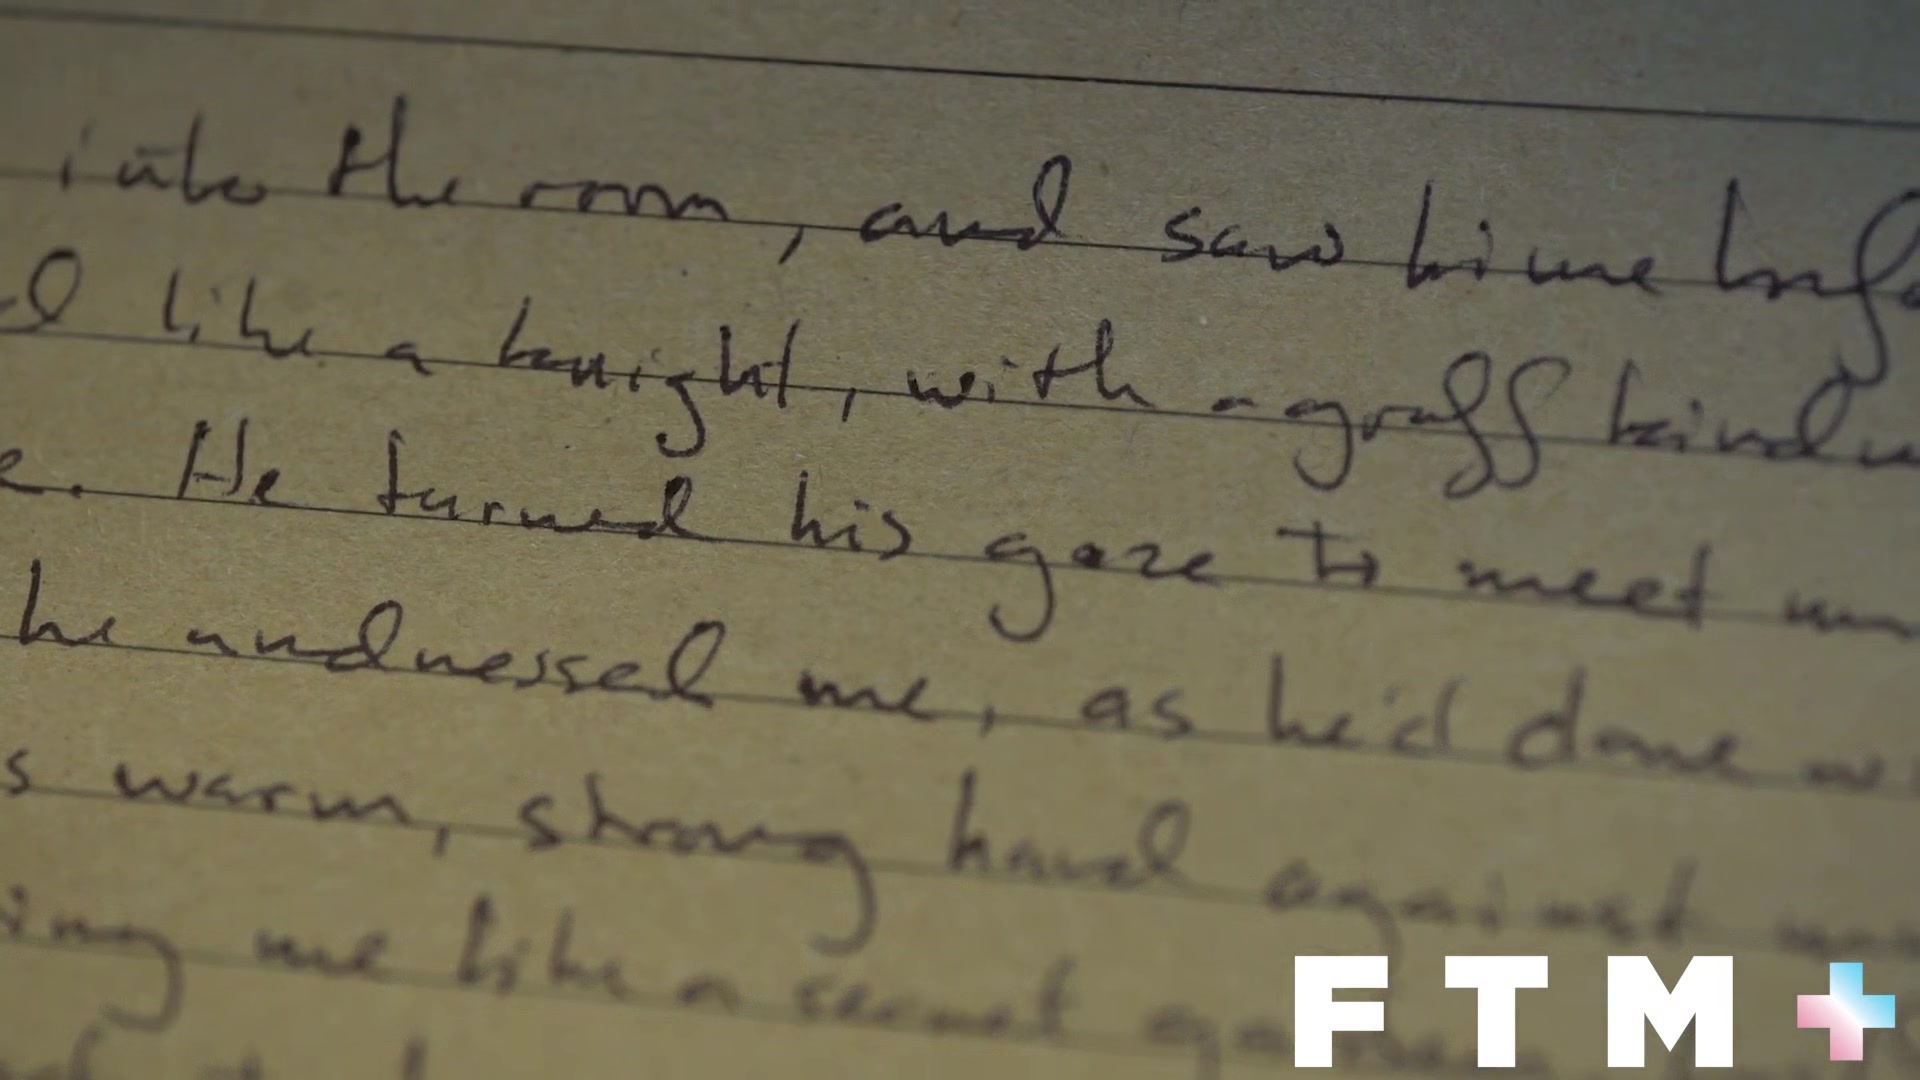 into the room, and saw him
like a knight, with a gruff
He turned his gaze to meet
he undressed me, as he'd done
warm, strong hand against
me like a secret
FTM+